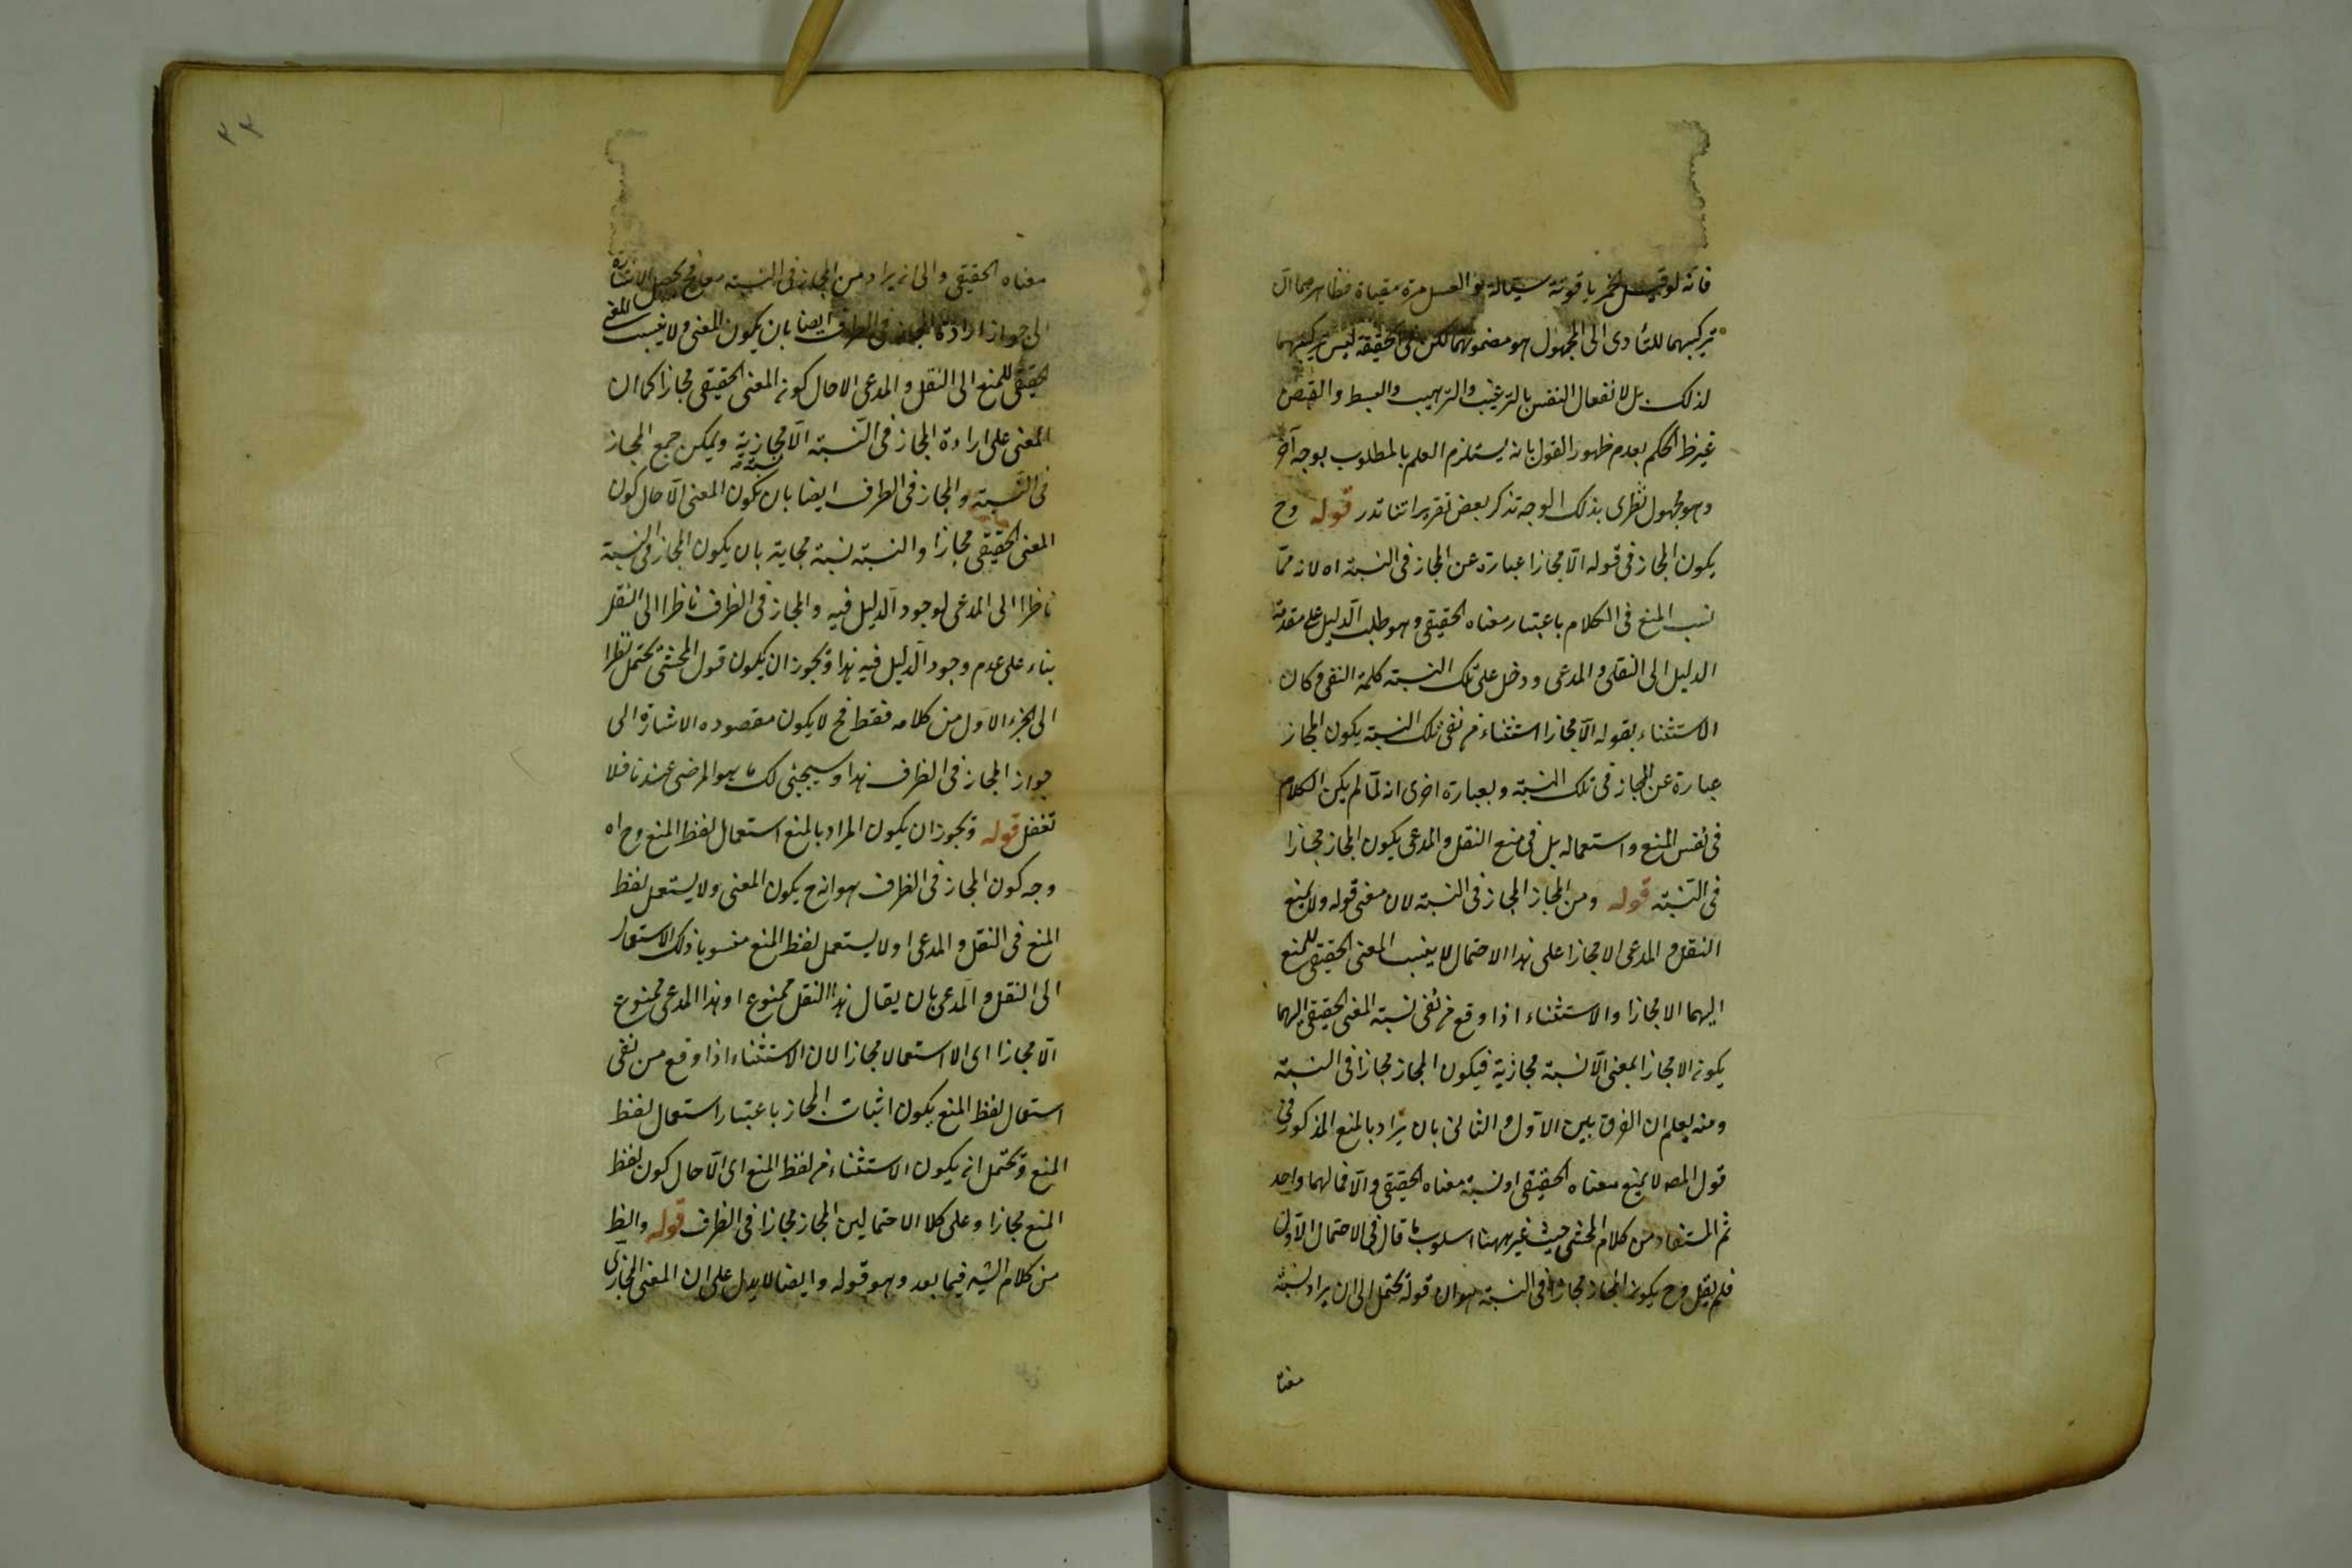 فانه لو قيل الخمر ياقوتة سيالة او العسل مرة مقياة فظاهرهما ان
تركيبهما للتأدى الى المجهول هو مضمونهما لكن فى الحقيقة ليس تركيبهما
لذلك بل لانفعال النفس بالترغيب والترهيب والبسط والقبض
غيرظ الحكم بعدم ظهور القول بانه يستلزم العلم بالمطلوب بوجه آخر
وهو مجهول نظرى بذلك الوجه تذكر بعض تقريراتنا تدر قوله وح
يكون المجاز فى قوله الّا مجازا عبارة عن المجاز فى النسبة اه لانه لمّا
نسب المنع فى الكلام باعتبار معناه الحقيقى وهو طلب الدليل على مقدمة
الدليل الى النقل والمدعى ودخل على تلك النسبة كلمة النفى وكان
الاستثناء بقوله الّا مجازا استثناء من نفى تلك النسبة يكون المجاز
عبارة عن المجاز فى تلك النسبة وبعبارة اخرى انه لمّا لم يكن الكلام
فى نفس المنع واستعماله بل فى منع النقل والمدعى يكون المجاز مجازا
فى النسبة قوله ومن المجاز المجاز فى النسبة لان معنى قوله ولا يمنع
النقل والمدعى الا مجازا على هذا الاحتمال لا ينسب المعنى الحقيقى للمنع
اليهما الا مجازا والاستثناء اذا وقع من نفى نسبة المعنى الحقيقى اليهما
يكون الا مجازا بمعنى الّا نسبة مجازية فيكون المجاز مجازا فى النسبة
ومنه يعلم ان الفرق بين الاول والثانى بان يراد بالمنع المذكور فى
قول المص لا يمنع معناه الحقيقى او نسبة معناه الحقيقى والّا فمآلهما واحد
ثم المستفاد من كلام المحشى حيث غير ههنا اسلوب ما قال فى الاحتمال الاول
فلم يقل وح يكون المجاز مجازا فى النسبة هو ان قوله يحتمل الى ان يراد نسبة
معناه
٣٣
معناه الحقيقى والى ان يراد من المجاز فى النسبة معا فح يحصل الاشارة
الى جواز ارادة المجاز فى الطرف ايضا بان يكون المعنى ولا ينسب المعنى
الحقيقى للمنع الى النقل والمدعى الا حال كون المعنى الحقيقى مجازا كما ان
المعنى على ارادة المجاز فى النسبة الّا مجازية ويمكن جمع المجاز
نسبة
فى النسبة والمجاز فى الطرف ايضا بان يكون المعنى الّا حال كون
المعنى الحقيقى مجازا والنسبة نسبة مجازية بان يكون المجاز فى النسبة
ناظرا الى المدعى لوجود الدليل فيه والمجاز فى الطرف ناظرا الى النقل
بناء على عدم وجود الدليل فيه هذا ويجوز ان يكون قول المحشى يحتمل نظرا
الى الجزء الاول من كلامه فقط فح لا يكون مقصوده الاشارة الى
جواز المجاز فى الطرف هذا وسيجئى لك ما هو المرضى عندنا فلا
تغفل قوله ويجوز ان يكون المراد بالمنع استعمال لفظ المنع وح اه
وجه كون المجاز فى الطرف هو انه ح يكون المعنى ولا يستعمل لفظ
المنع فى النقل والمدعى او لا يستعمل لفظ المنع منسوبا ذلك الاستعمال
الى النقل والمدعى بان يقال هذا النقل ممنوع او هذا المدعى ممنوع
الّا مجازا اى الا استعمالا مجازا لان الاستثناء اذا وقع من نفى
استعمال لفظ المنع يكون اثبات المجاز باعتبار استعمال لفظ
المنع ويحتمل ان يكون الاستثناء من لفظ المنع اى الّا حال كون لفظ
المنع مجازا وعلى كلا الاحتمالين المجاز مجازا فى الطرف قوله والظ
من كلام الشه فيما بعد وهو قوله وايضا لا يدل على ان المعنى المجازى